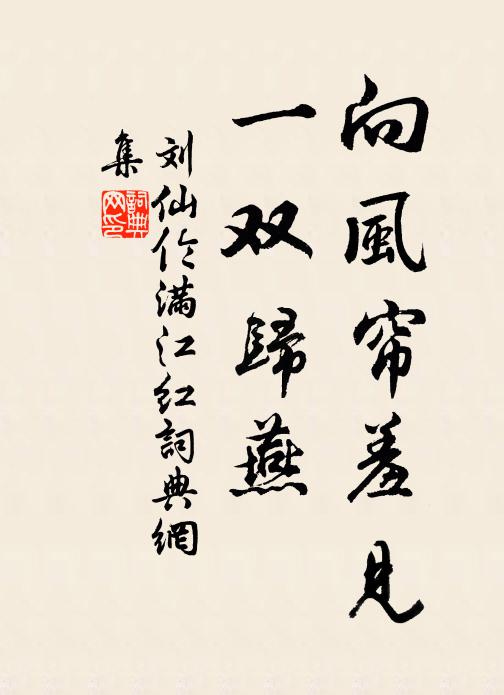 向風帘羞見
一双歸燕
刘仙伦满江红詞典網
集
詞典
网印